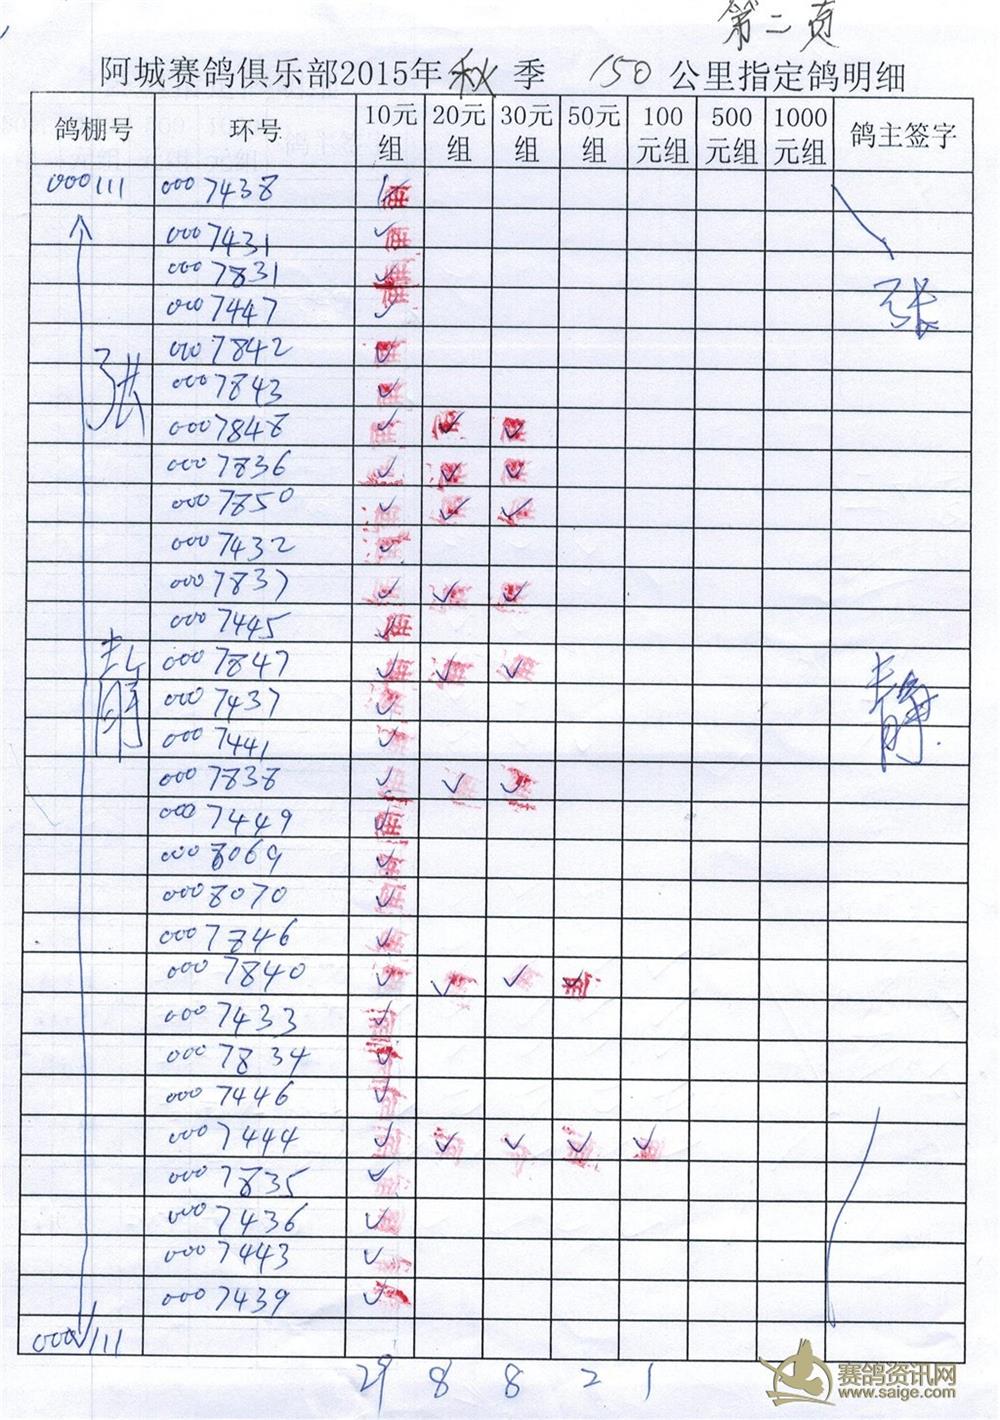 第二页
阿城赛鸽俱乐部2015年秋季 150公里指定鸽明细
鸽棚号 环号 10元组 20元组 30元组 50元组 100元组 500元组 1000元组 鸽主签字
000111 0007438 ✓
0007431 ✓
0007831 ✓
0007447 ✓
张
0007842 ✓
张 0007843 ✓
0007848 ✓ ✓ ✓
0007836 ✓ ✓ ✓
0007850 ✓ ✓ ✓
0007432 ✓
0007837 ✓ ✓ ✓
0007445 ✓
静 0007847 ✓ ✓ ✓
0007437 ✓
静
0007441 ✓
0007838 ✓ ✓ ✓
0007449 ✓
0008069 ✓
0008070 ✓
0007846 ✓
0007840 ✓ ✓ ✓ ✓
0007433 ✓
0007834 ✓
0007446 ✓
0007444 ✓ ✓ ✓ ✓ ✓
0007835 ✓
0007436 ✓
0007443 ✓
0007439 ✓
000111
29 8 8 2 1
赛鸽资讯网
www.saige.com